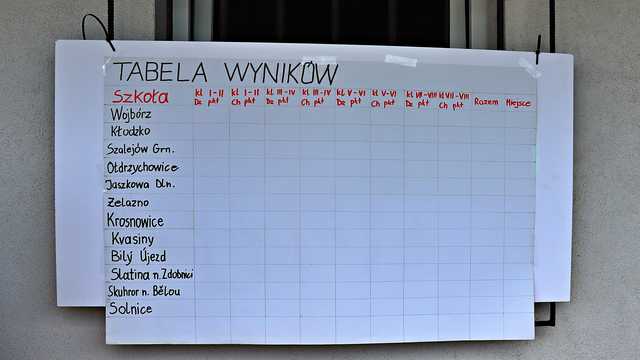 TABELA WYNIKÓW
Szkoła kl I-II kl I-II kl III-IV kl III-IV kl V-VI kl V-VI kl VII-VIII kl VII-VIII Razem Miejsce
Dz pkt Ch pkt Dz pkt Ch pkt Dz pkt Ch pkt Dz pkt Ch pkt
Wojbórz
Kłodzko
Szalejów Grn.
Ołdrzychowice
Jaszkowa Dln.
Żelazno
Krosnowice
Kvasiny
Bilý Újezd
Slatina n.Zdobnici
Skuhrov n. Bělou
Solnice